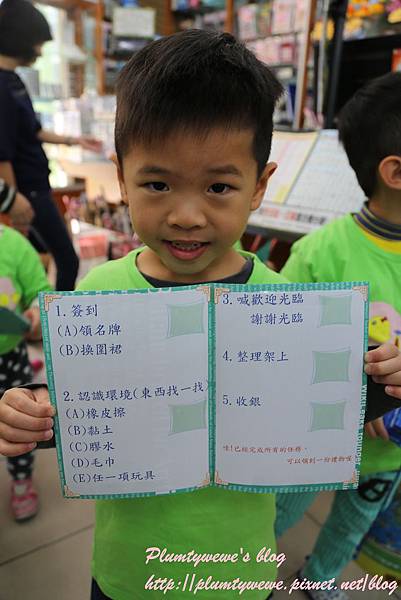 1.簽到
(A)領名牌
(B)換圍裙
2.認識環境(東西找一找)
(A)橡皮擦
(B)黏土
(C)膠水
(D)毛巾
(E)任一項玩具
3.喊歡迎光臨
謝謝光臨
4.整理架上
5.收銀
咦!已經完成所有的任務,
可以領到一份禮物喔
Plumtywewe's blog
http://plumtywewe.pixnet.net/blog